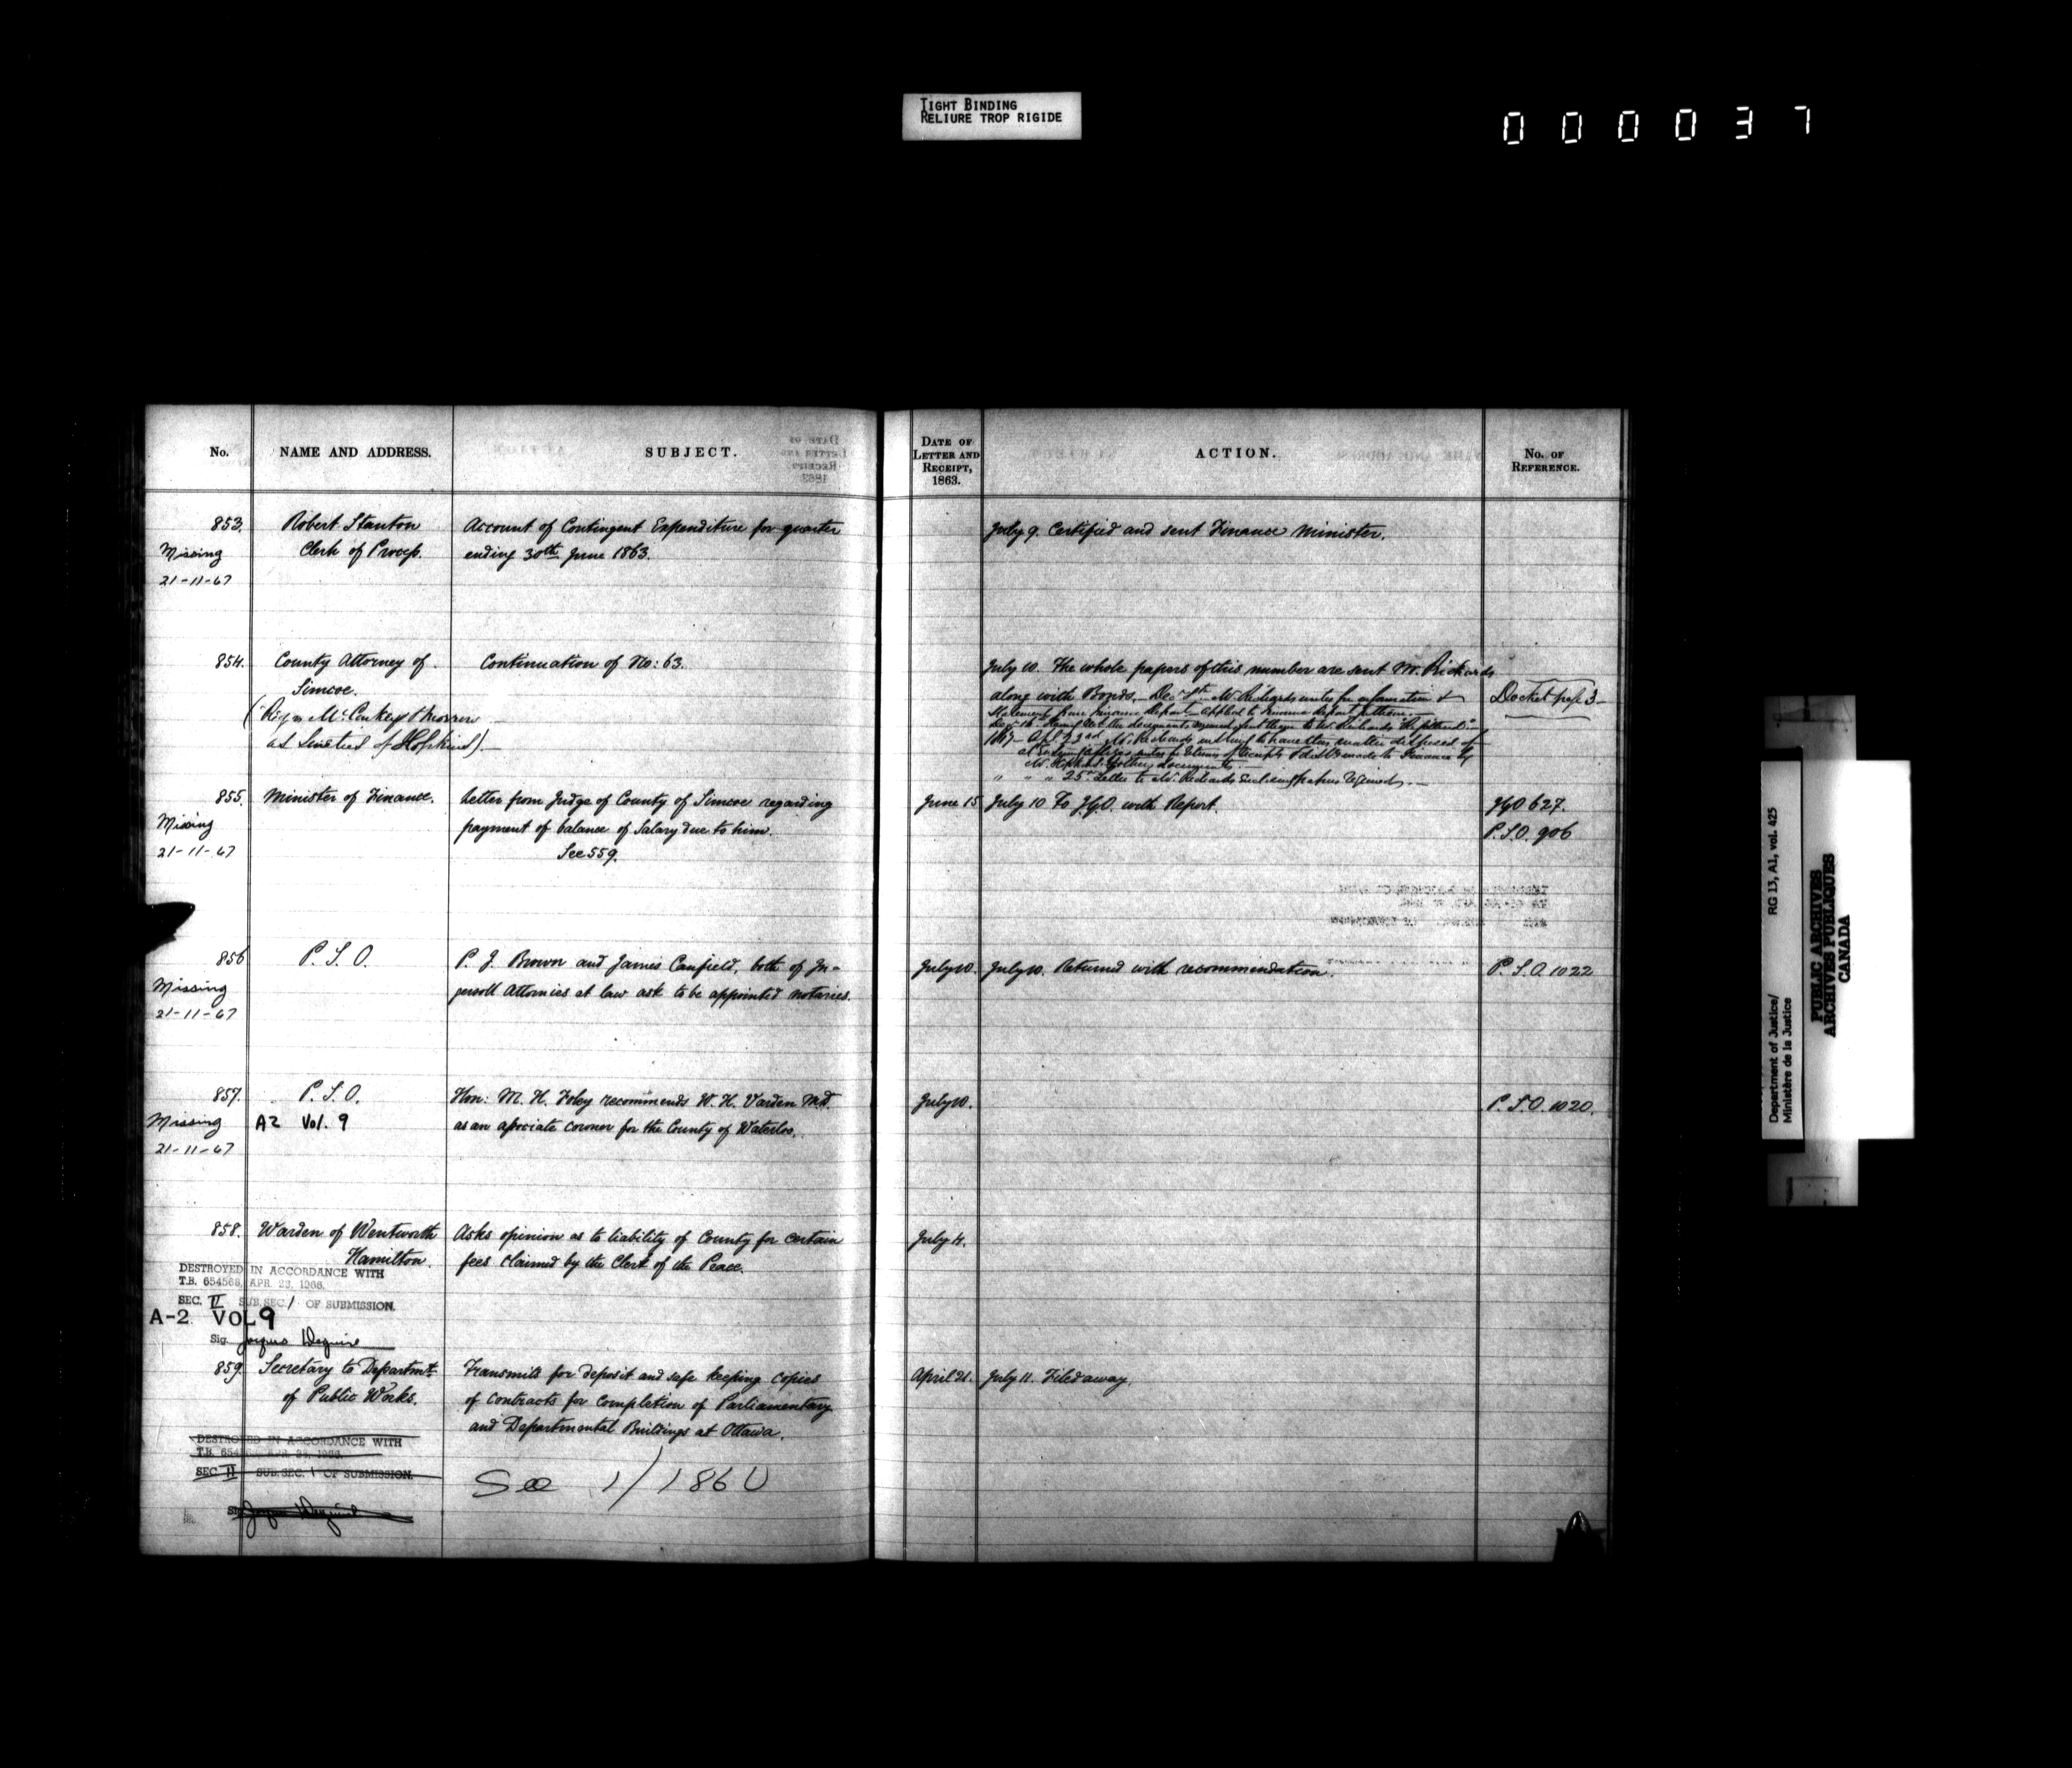 TIGHT BINDING
RELIURE TROP RIGIDE
000037
No.
NAME AND ADDRESS.
SUBJECT.
DATE OF
LETTER AND
RECEIPT,
1863.
ACTION.
No. OF
REFERENCE.
853. Robert Stanton Account of Contingent Expenditure for quarter July 9. Certified and sent Finance Minister.
Missing Clerk of Process. ending 30th June 1863.
21-11-67
854. County Attorney of Continuation of No: 63. July 10. The whole papers of this number are sent Mr. Richards
Simcoe. along with Bonds. Docket page 3
855. Minister of Finance. Letter from Judge of County of Simcoe regarding June 15 July 10 To with Report. 627.
Missing payment of balance of Salary due to him. P.S.O. 906
21-11-67 See 559.
856 P.S.O. P. J. Brown and James Canfield, both of In-
gersoll Attornies at law ask to be appointed notaries. July 10. July 10. Returned with recommendation. P.S.O. 1022
Missing
21-11-67
857. P.S.O. Hon: M. H. Foley recommends W. H. Varden M.D. July 10. P.S.O. 1020.
Missing A2 Vol. 9 as an associate coroner for the County of Waterloo.
21-11-67
858. Warden of Wentworth Asks opinion as to liability of County for certain July 4.
Hamilton. fees claimed by the Clerk of the Peace.
DESTROYED IN ACCORDANCE WITH
T.B. 654568, APR. 23, 1966.
SEC. II SUB.SEC. 1 OF SUBMISSION.
A-2 VOL 9
Sig.
859. Secretary to Departmt. Transmits for deposit and safe keeping copies April 21. July 11. Filed away.
of Public Works. of contracts for completion of Parliamentary
and Departmental Buildings at Ottawa.
DESTROYED IN ACCORDANCE WITH
SEC. II SUB.SEC. 1 OF SUBMISSION.
See 1/1860
Department of Justice/ RG 13, A1, vol. 425
Ministère de la Justice
PUBLIC ARCHIVES
ARCHIVES PUBLIQUES
CANADA